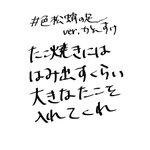 #色松蛸の足
ver.かんすけ
たこ焼きには
はみ出すくらい
大きなたこを
入れてくれ